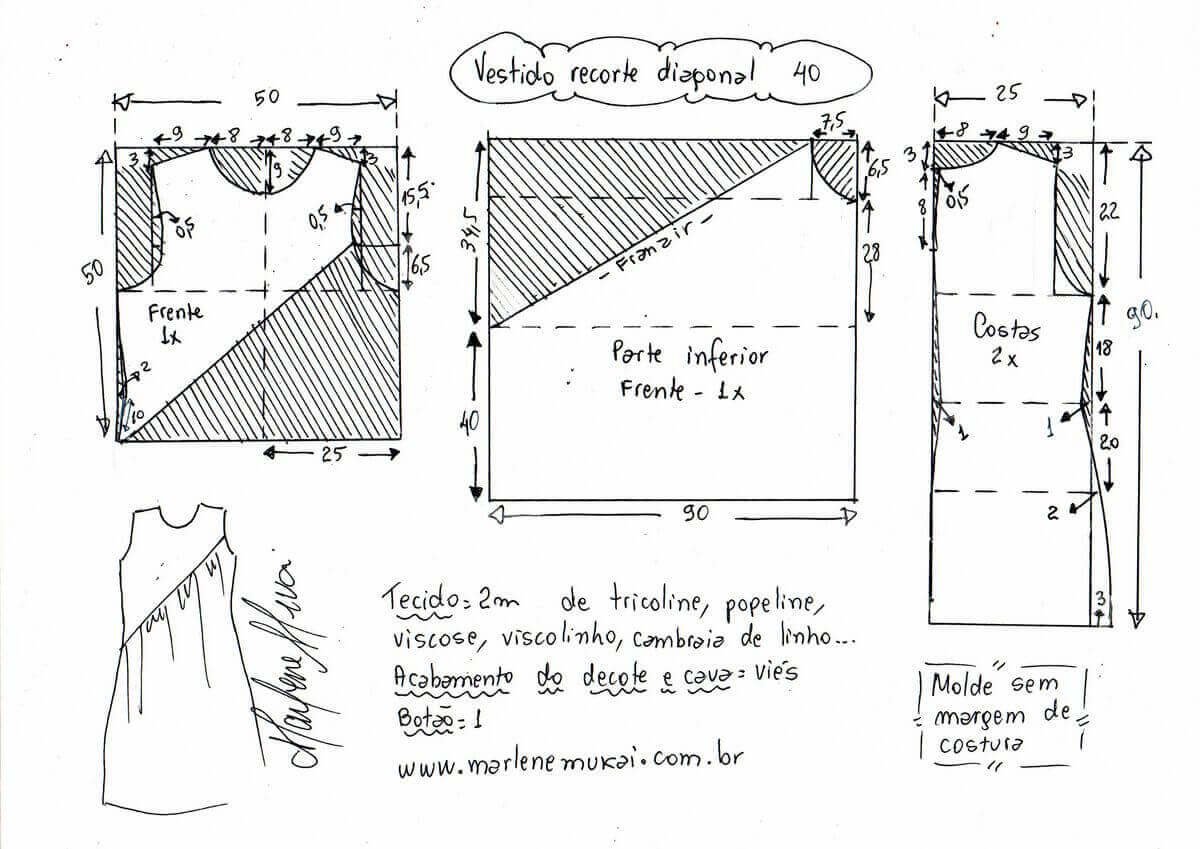 Vestido recorte diagonal 40
50
9 8 8 9
3 9 3
50
0,5 0,5
15,5
6,5
Frente
1x
2
10
25
7,5
6,5
34,5
- Franzir -
28
Parte inferior
Frente - 1x
40
90
25
8 9
3 3
0,5
8
22
90.
Costas
2x
18
1 1
20
2
3
Marlene Mukai
Tecido = 2m de tricoline, popeline,
viscose, viscolinho, cambraia de linho...
Acabamento do decote e cava = viés
Botão = 1
www.marlenemukai.com.br
Molde sem
margem de
costura